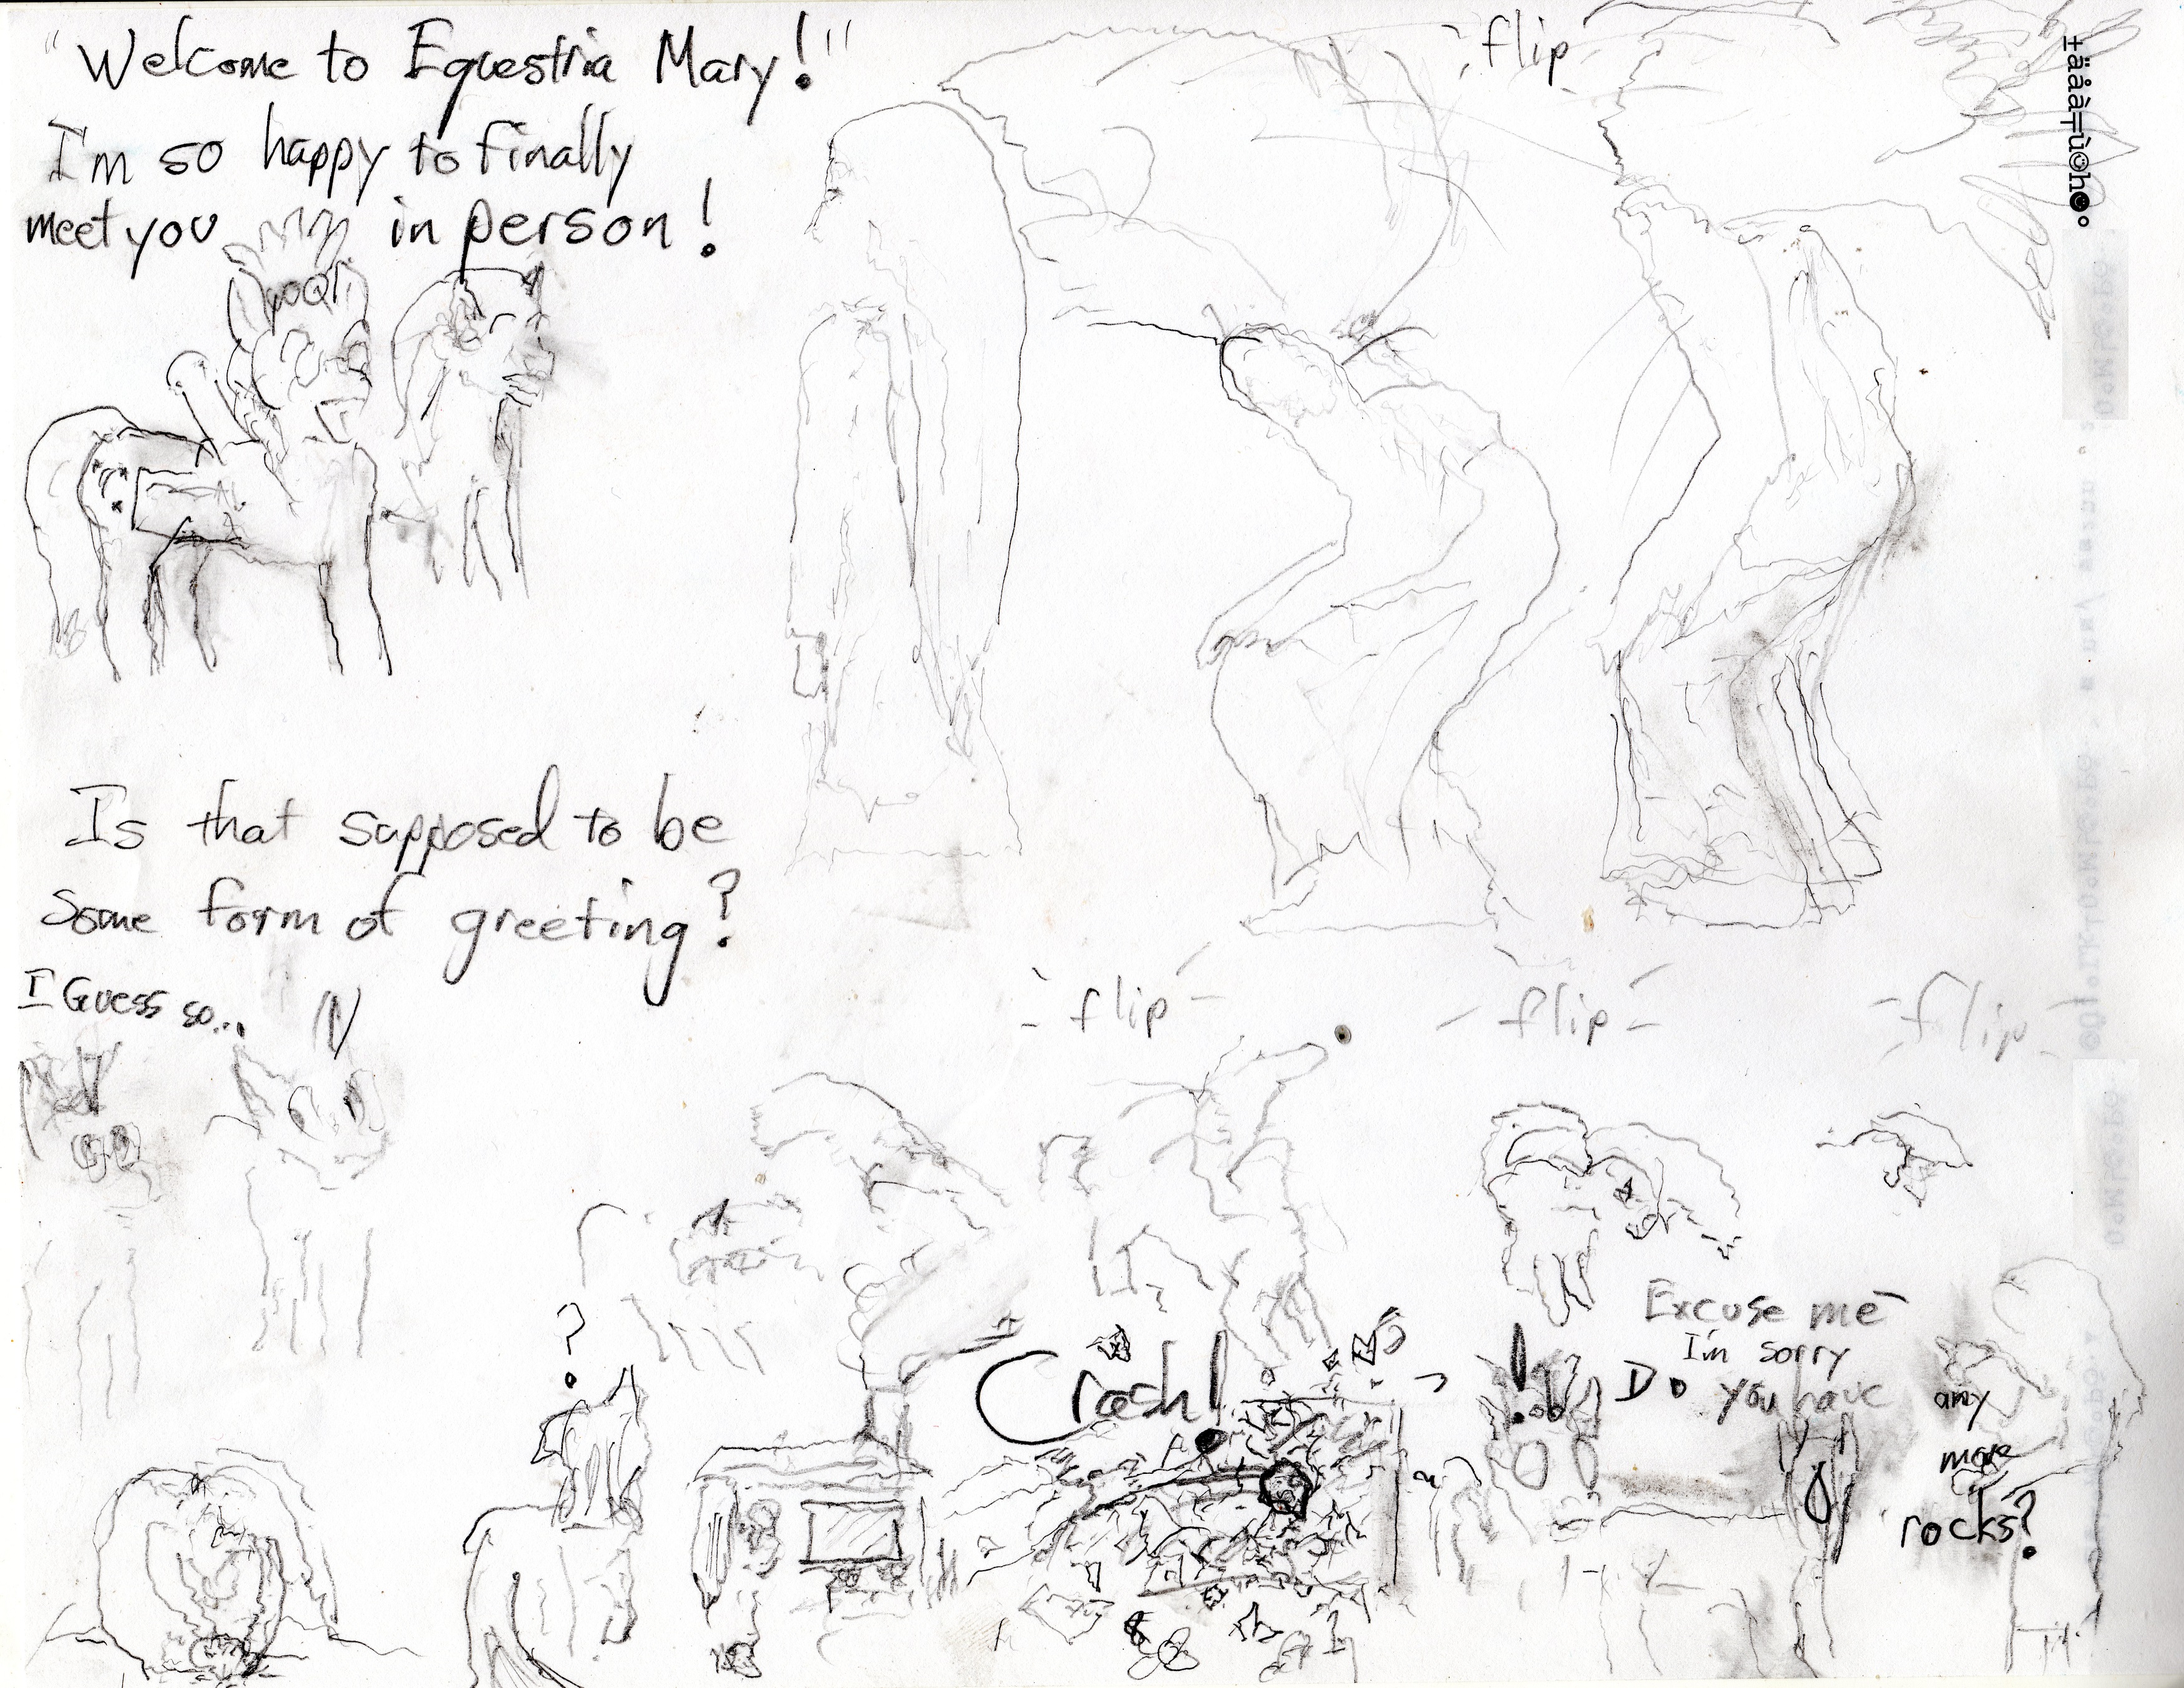 "Welcome to Equestria Mary!"
I'm so happy to finally
meet you in person!
flip
Is that supposed to be
some form of greeting?
I Guess so...
flip
flip
flip
?
Crash!
!
Excuse me
I'm sorry
Do you have
any
more
rocks?